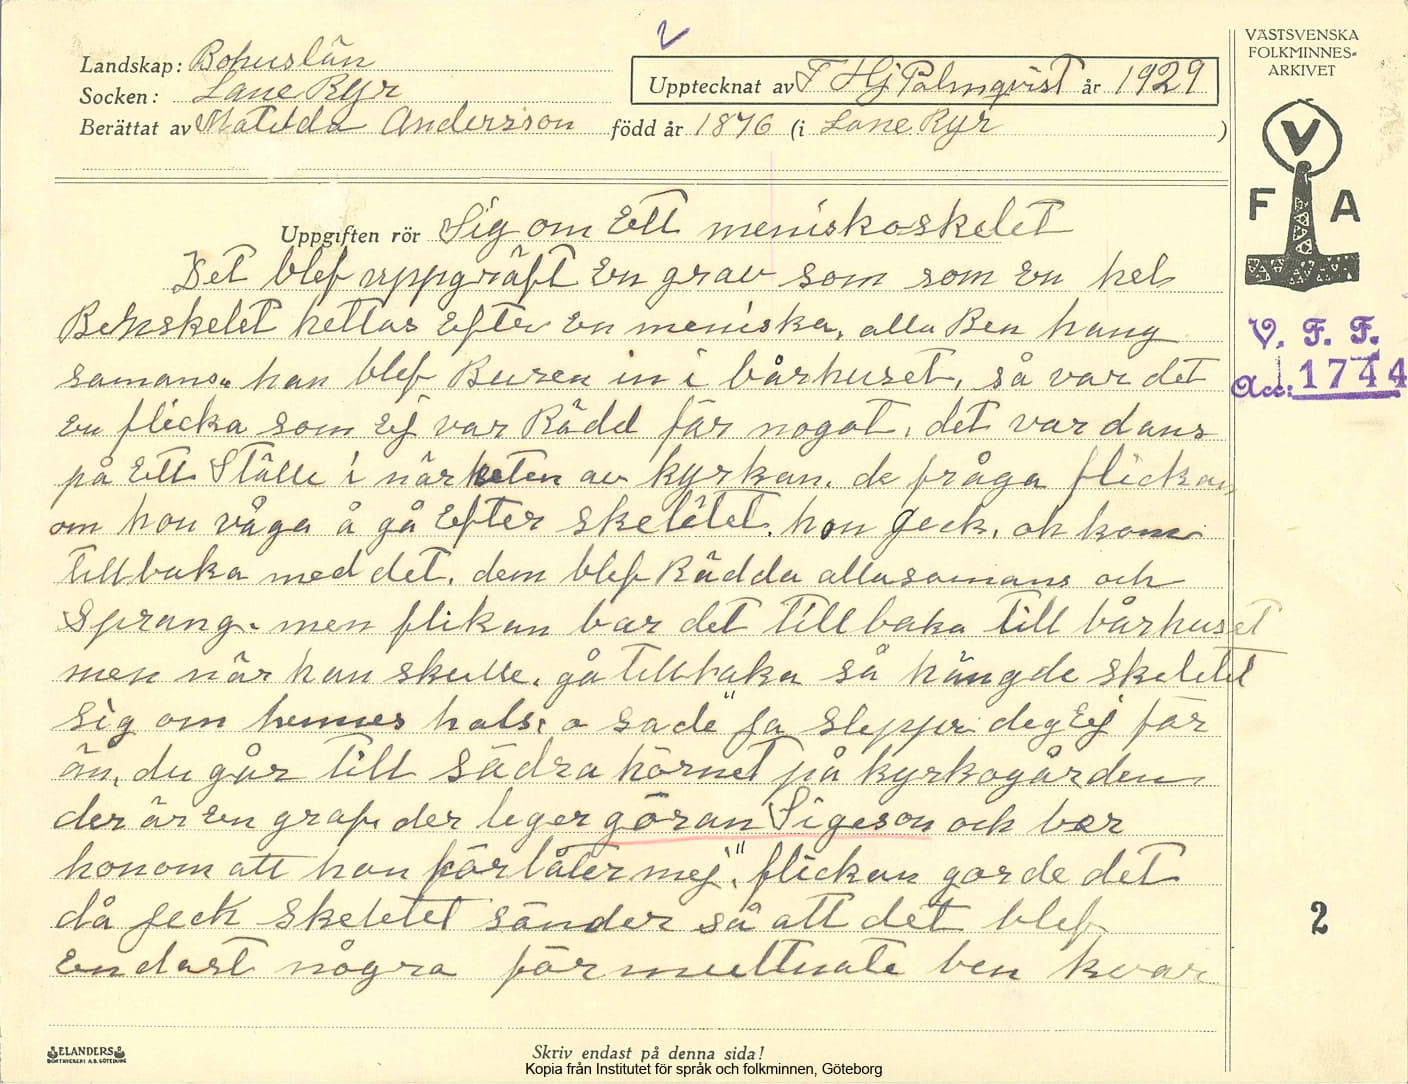 VÄSTSVENSKA
FOLKMINNES-
ARKIVET
V
F A
V. F. F.
Acc: 1744
Landskap: Bohuslän
Socken: Lane Ryr
Upptecknat av F Hj Palmqvist år 1929
Berättat av Matilda Andersson född år 1876 (i Lane Ryr )
Uppgiften rör Sig om Ett meniskoskelet
Det blef uppgräft En grav som som En hel
Benskelet hettas Efter En meniska, alla Ben hang
samans. han blef Buren in i bårhuset, så var det
En flicka som Ej var Rädd får nogot, det var dans
på Ett Ställe i närheten av kyrkan. de fråga flickan
om hon våga å gå Efter skelëtet. hon geck, ok kom
tillbaka med det. dem blef Rädda allasamans och
Sprang. men flikan bar det tillbaka till bårhuset
men når han skulle. gå tillbaka så hängde skeletet
sig om hennes hals; o sade "Ja slepper deg Ej får
än, du går till sädra hörnet på kyrkogården
der är En graf, der leger göran Sigeson och ber
honom att han förlåter mej", flickan gorde det
då geck skeletet sänder så att det blef
Endast några förmultnate ben kvar
2
ELANDERS
BOKTRYCKERI A.B. GÖTEBORG
Skriv endast på denna sida!
Kopia från Institutet för språk och folkminnen, Göteborg